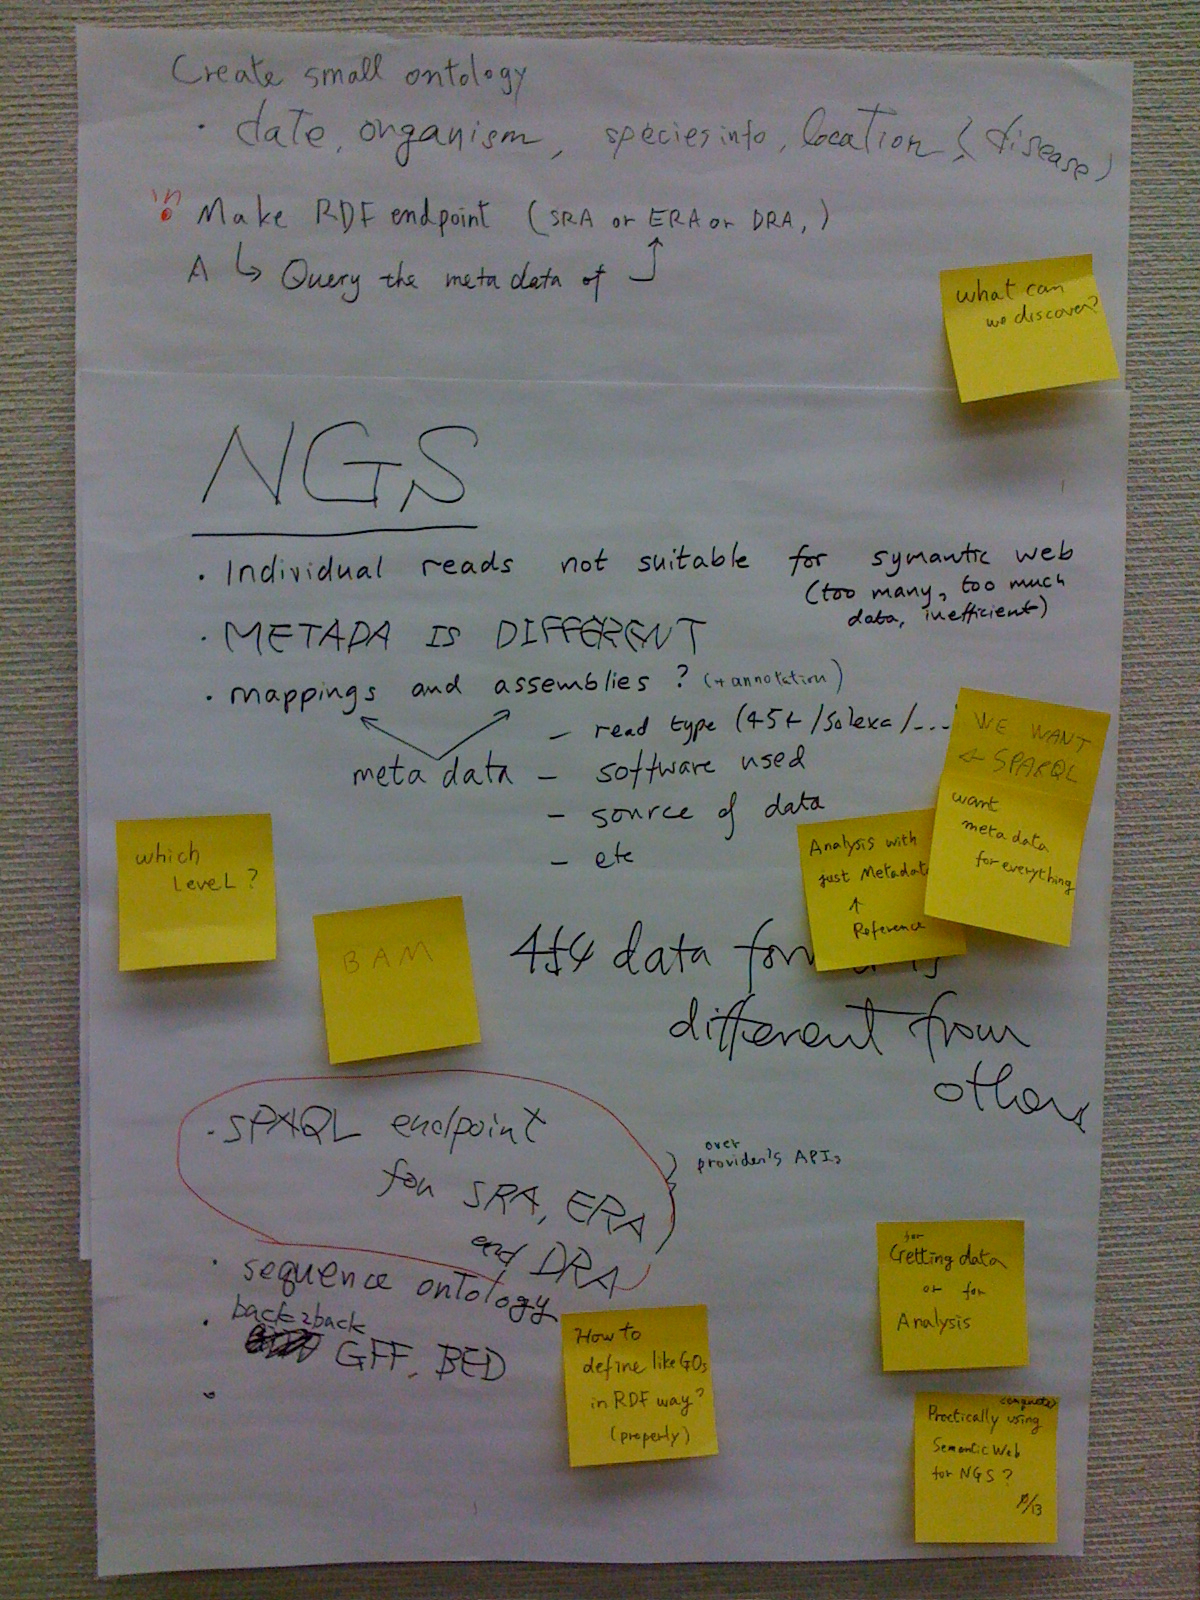 Create small ontology
· date, organism, species info, location, (disease)
Make RDF endpoint (SRA or ERA or DRA, )
A ↳ Query the meta data of
what can
we discover?
NGS
· Individual reads not suitable for symantic web
(too many, too much
data, inefficient)
· METADA IS DIFFERENT
· mappings and assemblies ? (+annotation)
meta data
– read type (454/Solexa/...
– software used
– source of data
– etc
WE WANT
← SPARQL
want
meta data
for everything
Analysis with
just Metadata
↑
Reference
which
LeveL ?
BAM
454 data is
different from
others
· SPAQL endpoint
for SRA, ERA
and DRA
over
provider's APIs
· sequence ontology
· back2back
GFF, BED
·
How to
define like GOs
in RDF way?
(properly)
for
Getting data
or for
Analysis
Practically using
Semantic Web
for NGS?